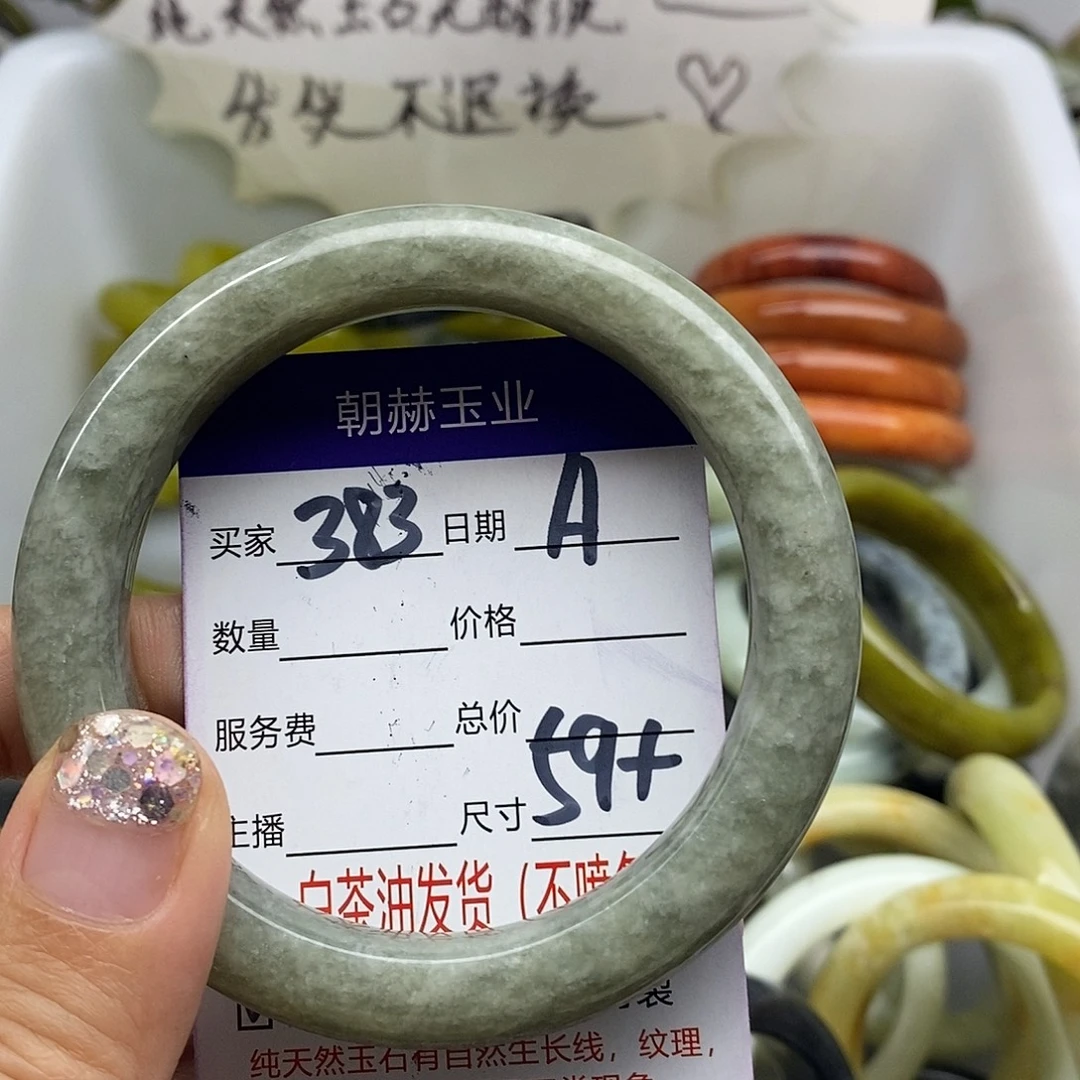 纯天然玉石无酸洗
售後不退换
朝赫玉业
买家 383 日期 A
数量 价格
服务费 总价
主播 尺寸 59+
白茶油发货（不喷
纯天然玉石有自然生长线，纹理，